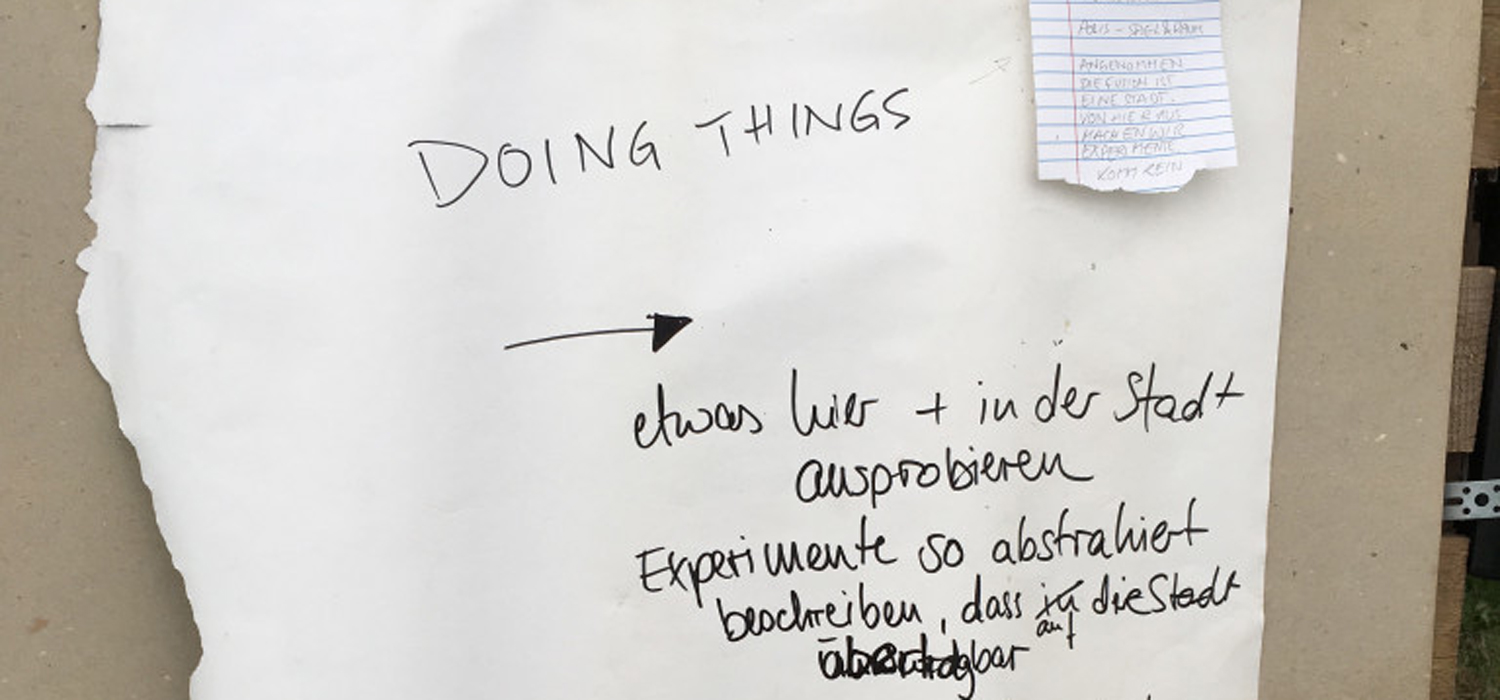 DOING THINGS
etwas hier + in der Stadt
ausprobieren
Experimente so abstrahiert
beschreiben, dass in die Stadt
auf
übertragbar
POLIS - SPIEL & RAUM
ANGENOMMEN
DIE FUSION IST
EINE STADT.
VON HIER AUS
MACHEN WIR
EXPERIMENTE.
KOMM REIN